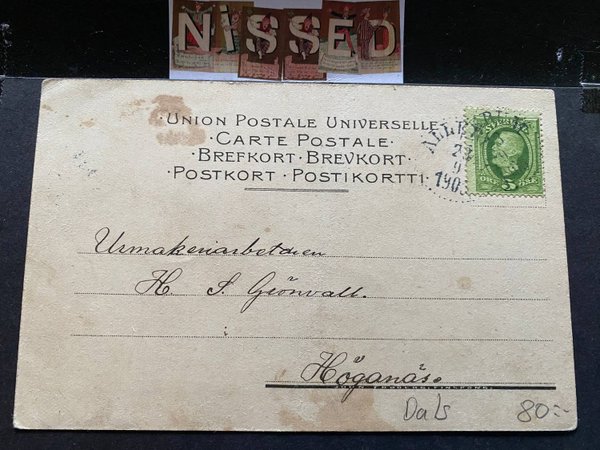 NISSED
·UNION POSTALE UNIVERSELLE·
·CARTE POSTALE·
·BREFKORT·BREVKORT·
·POSTKORT·POSTIKORTTI·
SVERIGE
5
1903
Urmakeriarbetaren
H. S. Grönvall.
Höganäs.
Dals
80:-